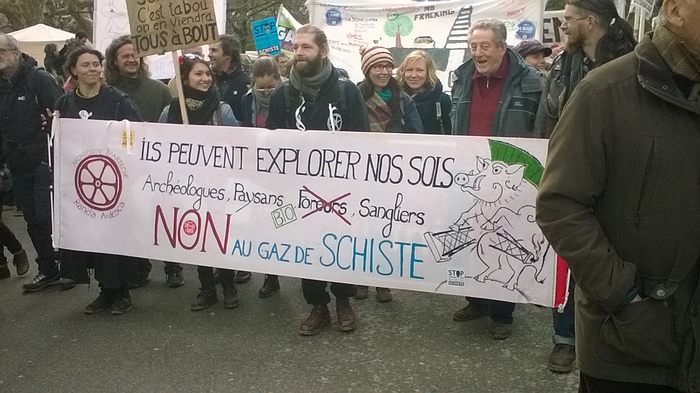 C'est tabou
on en viendra
TOUS à BOUT
NO FRACKING
STOP
ILS PEUVENT EXPLORER NOS SOLS
Archéologues, Paysans, BO Foreurs, Sangliers
NON AU GAZ DE SCHISTE
STOP